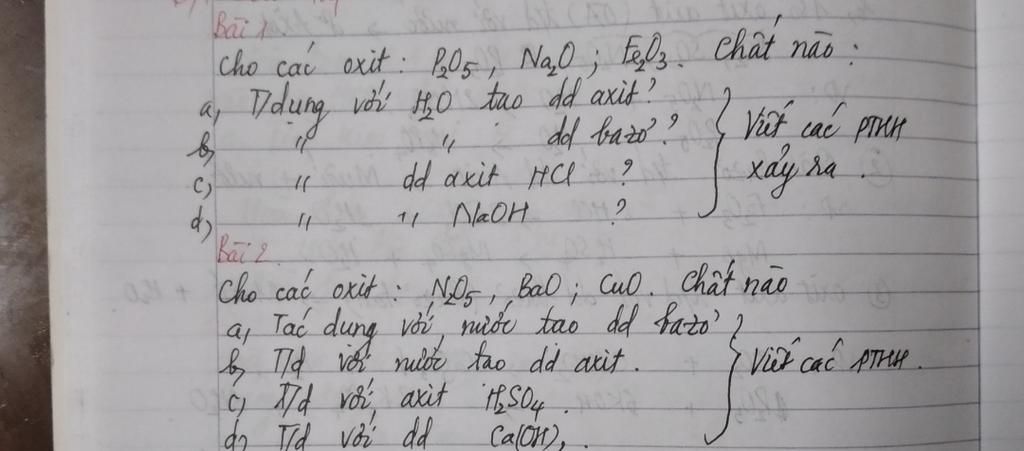 Bài 1
Cho các oxit : P₂O₅, Na₂O ; Fe₂O₃. Chất nào :
a, T/dụng với H₂O tạo dd axit ?
b, " " dd bazơ ?
c, " dd axit HCl ?
d, " " NaOH ?
Viết các PTHH
xảy ra .
Bài 2.
Cho các oxit : N₂O₅, BaO ; CuO. Chất nào
a, Tác dụng với, nước tạo dd bazơ
b, T/d với nước tạo dd axit.
c, T/d với, axit H₂SO₄ .
d, T/d với dd Ca(OH)₂.
Viết các PTHH.